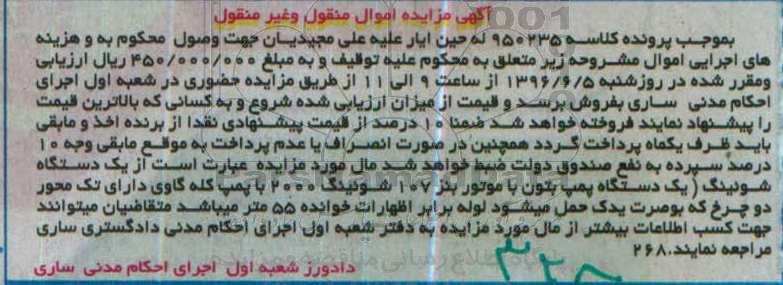 آگهی مزایده اموال منقول وغیر منقول
بموجب پرونده کلاسه ۹۵۰۲۳۵ له حین ایار علیه علی مجیدیان جهت وصول محکوم به و هزینه
های اجرایی اموال مشروحه زیر متعلق به محکوم علیه توقیف و به مبلغ ۴۵۰/۰۰۰/۰۰۰ ریال ارزیابی
ومقرر شده در روزشنبه ۱۳۹۶/۶/۵ از ساعت ۹ الی ۱۱ از طریق مزایده حضوری در شعبه اول اجرای
احکام مدنی ساری بفروش برسد و قیمت از میزان ارزیابی شده شروع و به کسانی که بالاترین قیمت
را پیشنهاد نمایند فروخته خواهد شد ضمنا ۱۰ درصد از قیمت پیشنهادی نقدا از برنده اخذ و مابقی
باید ظرف یکماه پرداخت گردد همچنین در صورت انصراف یا عدم پرداخت به موقع مابقی وجه ۱۰
درصد سپرده به نفع صندوق دولت ضبط خواهد شد مال مورد مزایده عبارت است از یک دستگاه
شوئینگ ( یک دستگاه پمپ بتون با موتور بنز ۱۰۷ شوئینگ ۲۰۰۰ با پمپ کله گاوی دارای تک محور
دو چرخ که بوصرت یدک حمل میشود لوله برابر اظهارات خوانده ۵۵ متر میباشد متقاضیان میتوانند
جهت کسب اطلاعات بیشتر از مال مورد مزایده به دفتر شعبه اول اجرای احکام مدنی دادگستری ساری
مراجعه نمایند.۲۶۸
دادورز شعبه اول اجرای احکام مدنی ساری